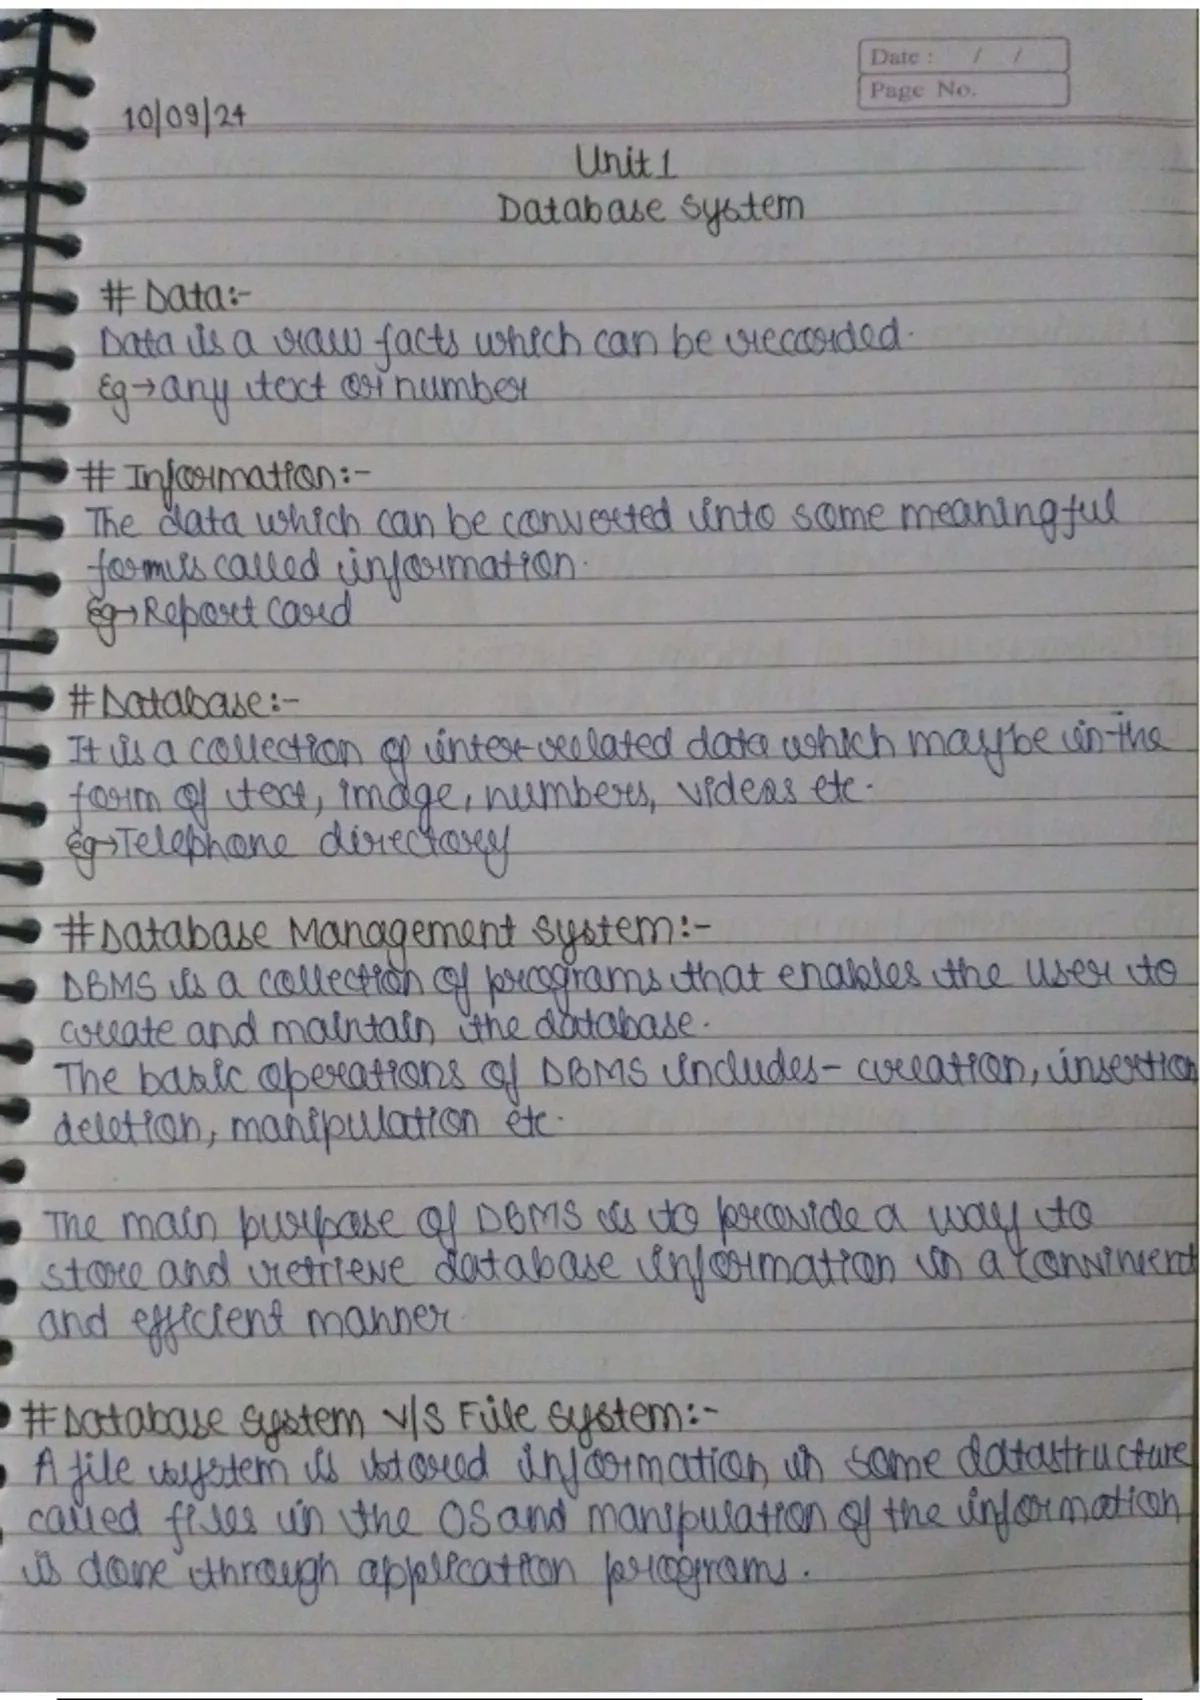 Date : / /
Page No.
10/09/24
Unit 1
Database System
# Data:-
Data is a raw facts which can be recorded.
Eg→any text or number
# Information:-
The data which can be converted into some meaningful
form is called information.
Eg→Report Card
# Database:-
It is a collection of inter-related data which maybe in the
form of text, image, numbers, videos etc.
Eg→Telephone directory
# Database Management System:-
DBMS is a collection of programs that enables the user to
create and maintain the database.
The basic operations of DBMS includes- creation, insertion
deletion, manipulation etc.
The main purpose of DBMS is to provide a way to
store and retrieve database information in a convinient
and efficient manner.
# Database System v/s File System:-
A file system is stored information in some datastructure
called files in the OS and manipulation of the information
is done through application programs.